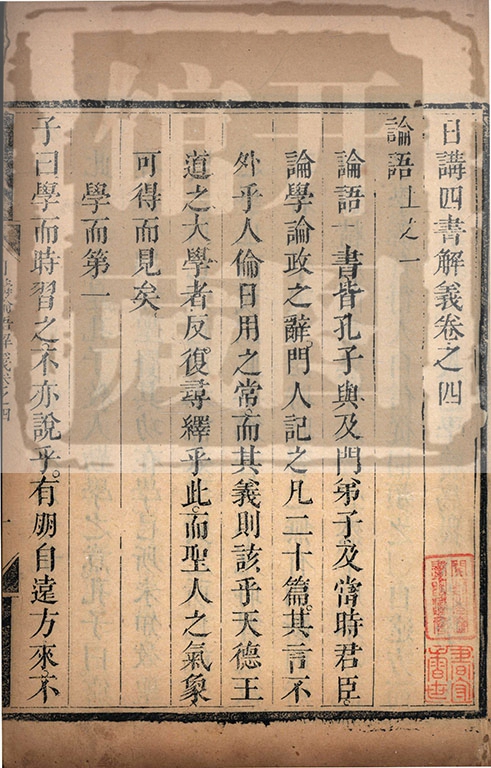 日講四書解義卷之四
論語上之一
論語一書皆孔子與及門弟子及當時君臣
論學論政之辭門人記之凡二十篇其言不
外乎人倫日用之常而其義則該乎天德王
道之大學者反復尋繹乎此而聖人之氣象
可得而見矣
學而第一
子曰學而時習之不亦說乎有朋自遠方來不